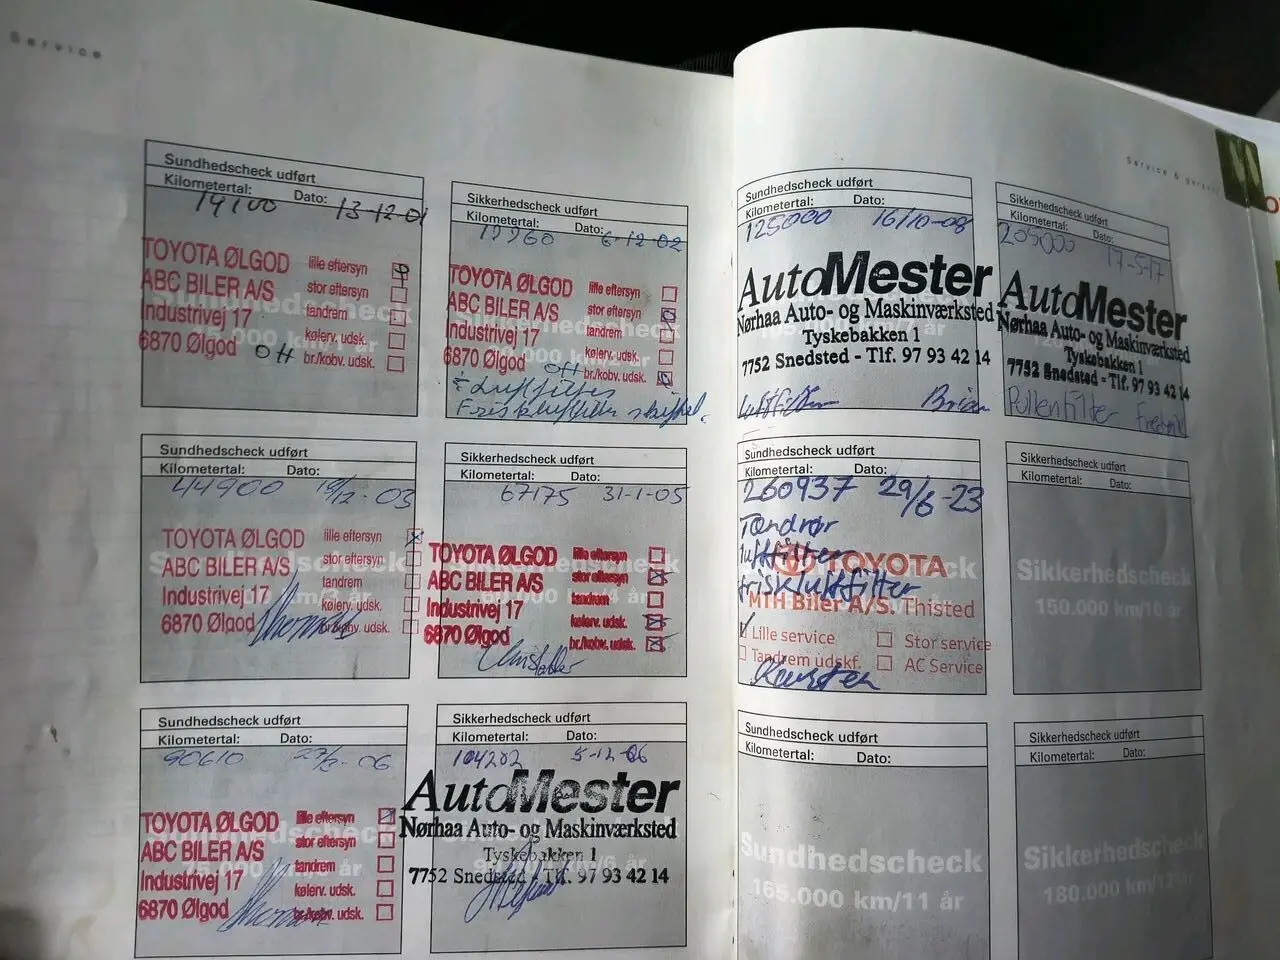 Service
Sundhedscheck udført
Kilometertal: Dato:
14100 13-12-01
TOYOTA ØLGOD
ABC BILER A/S
Industrivej 17
6870 Ølgod
lille eftersyn
stor eftersyn
tandrem
kølerv. udsk.
br./kobv. udsk.
Sikkerhedscheck udført
Kilometertal: Dato:
6-12-02
TOYOTA ØLGOD
ABC BILER A/S
Industrivej 17
6870 Ølgod
lille eftersyn
stor eftersyn
tandrem
kølerv. udsk.
br./kobv. udsk.
+ Luftfilter
Friskluftfilter skiftet.
Sundhedscheck udført
Kilometertal: Dato:
44900 19/12-03
TOYOTA ØLGOD
ABC BILER A/S
Industrivej 17
6870 Ølgod
lille eftersyn
stor eftersyn
tandrem
kølerv. udsk.
br./kobv. udsk.
Sikkerhedscheck udført
Kilometertal: Dato:
67175 31-1-05
TOYOTA ØLGOD
ABC BILER A/S
Industrivej 17
6870 Ølgod
lille eftersyn
stor eftersyn
tandrem
kølerv. udsk.
br./kobv. udsk.
Sundhedscheck udført
Kilometertal: Dato:
90610
TOYOTA ØLGOD
ABC BILER A/S
Industrivej 17
6870 Ølgod
lille eftersyn
stor eftersyn
tandrem
kølerv. udsk.
br./kobv. udsk.
Sikkerhedscheck udført
Kilometertal: Dato:
104202 5-12-06
AutoMester
Nørhaa Auto- og Maskinværksted
Tyskebakken 1
7752 Snedsted - Tlf. 97 93 42 14
Service & garanti
Sundhedscheck udført
Kilometertal: Dato:
125000 16/10-08
AutoMester
Nørhaa Auto- og Maskinværksted
Tyskebakken 1
7752 Snedsted - Tlf. 97 93 42 14
Luftfilter Brian
Sikkerhedscheck udført
Kilometertal: Dato:
205000 17-5-17
AutoMester
Nørhaa Auto- og Maskinværksted
Tyskebakken 1
7752 Snedsted - Tlf. 97 93 42 14
Pollenfilter
Sundhedscheck udført
Kilometertal: Dato:
260937 29/6-23
Tændrør
luftfilter
friskluftfilter
TOYOTA
MTH Biler A/S. Thisted
Lille service
Stor service
Tandrem udskf.
AC Service
Karsten
Sikkerhedscheck udført
Kilometertal: Dato:
Sikkerhedscheck
150.000 km/10 år
Sundhedscheck udført
Kilometertal: Dato:
Sundhedscheck
165.000 km/11 år
Sikkerhedscheck udført
Kilometertal: Dato:
Sikkerhedscheck
180.000 km/12 år